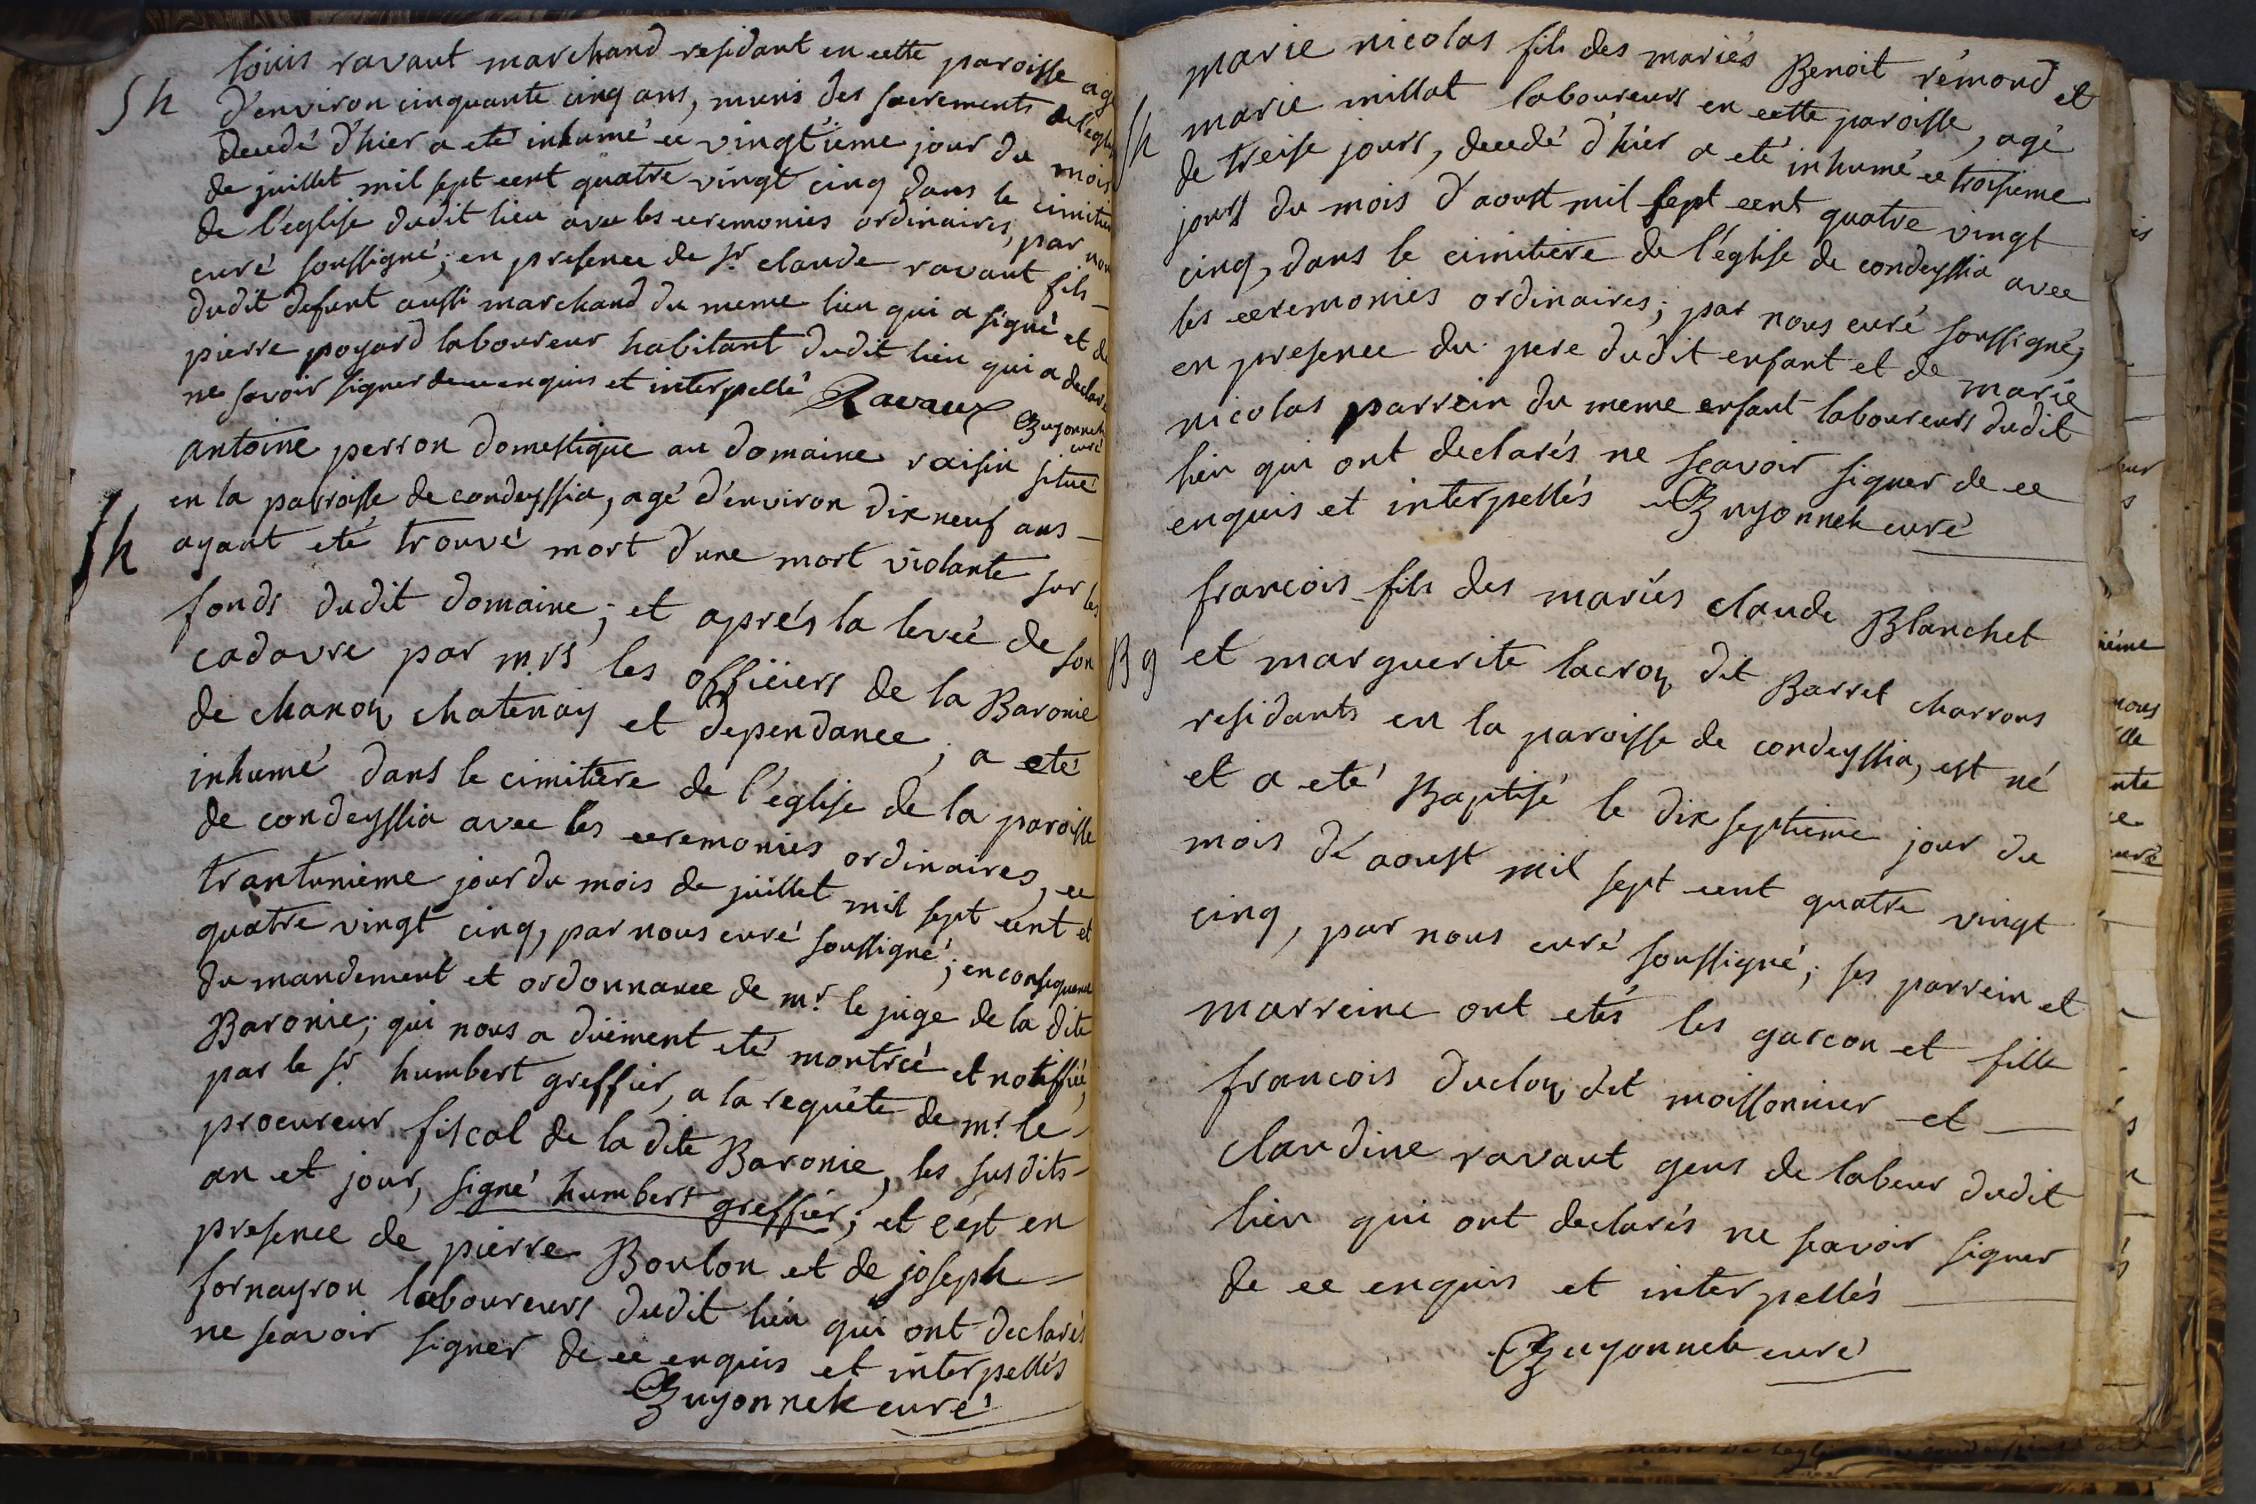 louis ravaut marchand residant en cette paroisse agé
Sh d'environ cinquante cinq ans, munis des sacrements de l'eglise
decedé d'hier a eté inhumé ce vingtieme jour du mois
de juillet mil sept cent quatre vingt cinq dans le cimitiere
de l'eglise dudit lieu avec les ceremonies ordinaires, par nous
curé soussigné; en presence de Sr. claude ravaut fils
dudit defunt aussi marchand du meme lieu qui a signé et de
pierre poyard laboureur habitant dudit lieu qui a declaré
ne savoir signer de ce enquis et interpellé Ravaux Guyonnek
curé
antoine perron domestique au domaine raisin situé
en la parroisse de condeyssia, agé d'environ dix neuf ans
Sh ayant eté trouvé mort d'une mort violante sur les
fonds dudit domaine; et aprés la leveé de son
cadavre par mrs les officiers de la Baronie
de chanoz chatenay et dependance; a eté
inhumé dans le cimitiere de l'eglise de la paroisse
de condeyssia avec les ceremonies ordinaires, ce
trantunieme jour du mois de juillet mil sept cent et
quatre vingt cinq, par nous curé soussigné; en consequence
du mandement et ordonnance de mr. le juge de la dite
Baronie; qui nous a duement eté montreé et notiffieé,
par le sr. humbert greffier, a la requête de mr. le
procureur fiscal de la dite Baronie, les susdits
an et jour, signé humbert greffier; et c'est en
presence de pierre Boulon et de joseph
fornayron laboureurs dudit lieu qui ont declarés
ne scavoir signer de ce enquis et interpellés
Guyonnek curé
marie nicolas fils des mariés Benoit rémond et
Sh marie millat laboureurs en cette paroisse, agé
de treise jours, decedé d'hier a eté inhumé ce troisieme
jours du mois d'aoust mil sept cent quatre vingt
cinq, dans le cimitiere de l'église de condeyssia avec
les ceremonies ordinaires; par nous curé soussigné;
en presence du pere dudit enfant et de marie
nicolas parrein du meme enfant laboureurs dudit
lieu qui ont declarés ne scavoir signer de ce
enquis et interpellés Guyonnek curé
francois fils des mariés claude Blanchet
Bg et marguerite lacroz dit Barret charrons
residants en la paroisse de condeyssia, est né
et a eté Baptisé le dix septieme jour du
mois d'aoust mil sept cent quatre vingt
cinq, par nous curé soussigné; ses parrein et
marreine ont etés les garcon et fille
francois ducloz dit moissonnier et
claudine ravaut gens de labeur dudit
lieu qui ont declarés ne scavoir signer
de ce enquis et interpellés
Guyonnek curé